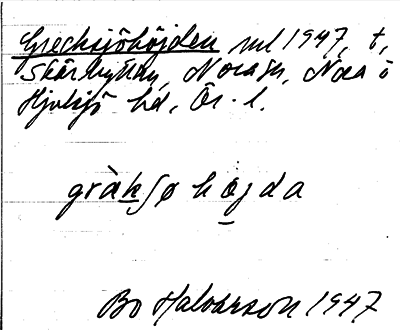 Grecksjöhöjden ul 1947, t,
Skärhyttan, Nora sn, Nora o
Hjulsjö hd, Ör. l.
gràkʃø høgda
Bo Halvarson 1947